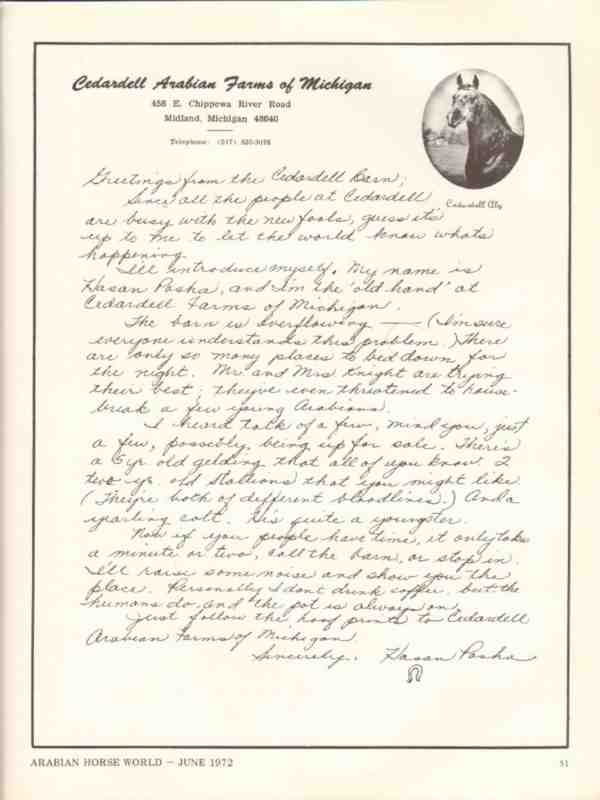 Cedardell Arabian Farms of Michigan
458 E. Chippewa River Road
Midland, Michigan 48640
Telephone: (517)
Cedardell Aly
Greetings from the Cedardell Barn;
Since all the people at Cedardell
are busy with the new foals, guess its
up to me to let the world know whats
happening.
I'll introduce myself. My name is
Hasan Pasha, and I'm the 'old hand' at
Cedardell Farms of Michigan.
The barn is overflowing — (I'm sure
everyone understands this problem.) There
are only so many places to bed down for
the night. Mr. and Mrs Knight are trying
their best; they've even threatened to house-
break a few young Arabians.
I heard talk of a few, mind you, just
a few, possibly, being up for sale. There's
a 5 yr. old gelding that all of you know. 2
two yr. old Stallions that you might like.
(They're both of different bloodlines.) And a
yearling colt. He's quite a youngster.
Now if you people have time, it only takes
a minute or two, call the barn, or stop in.
I'll raise some noise and show you the
place. Personally I dont drink coffee, but the
humans do, and the pot is always on.
Just follow the hoof prints to Cedardell
Arabian Farms of Michigan
Sincerely, Hasan Pasha
ARABIAN HORSE WORLD — JUNE 1972
51